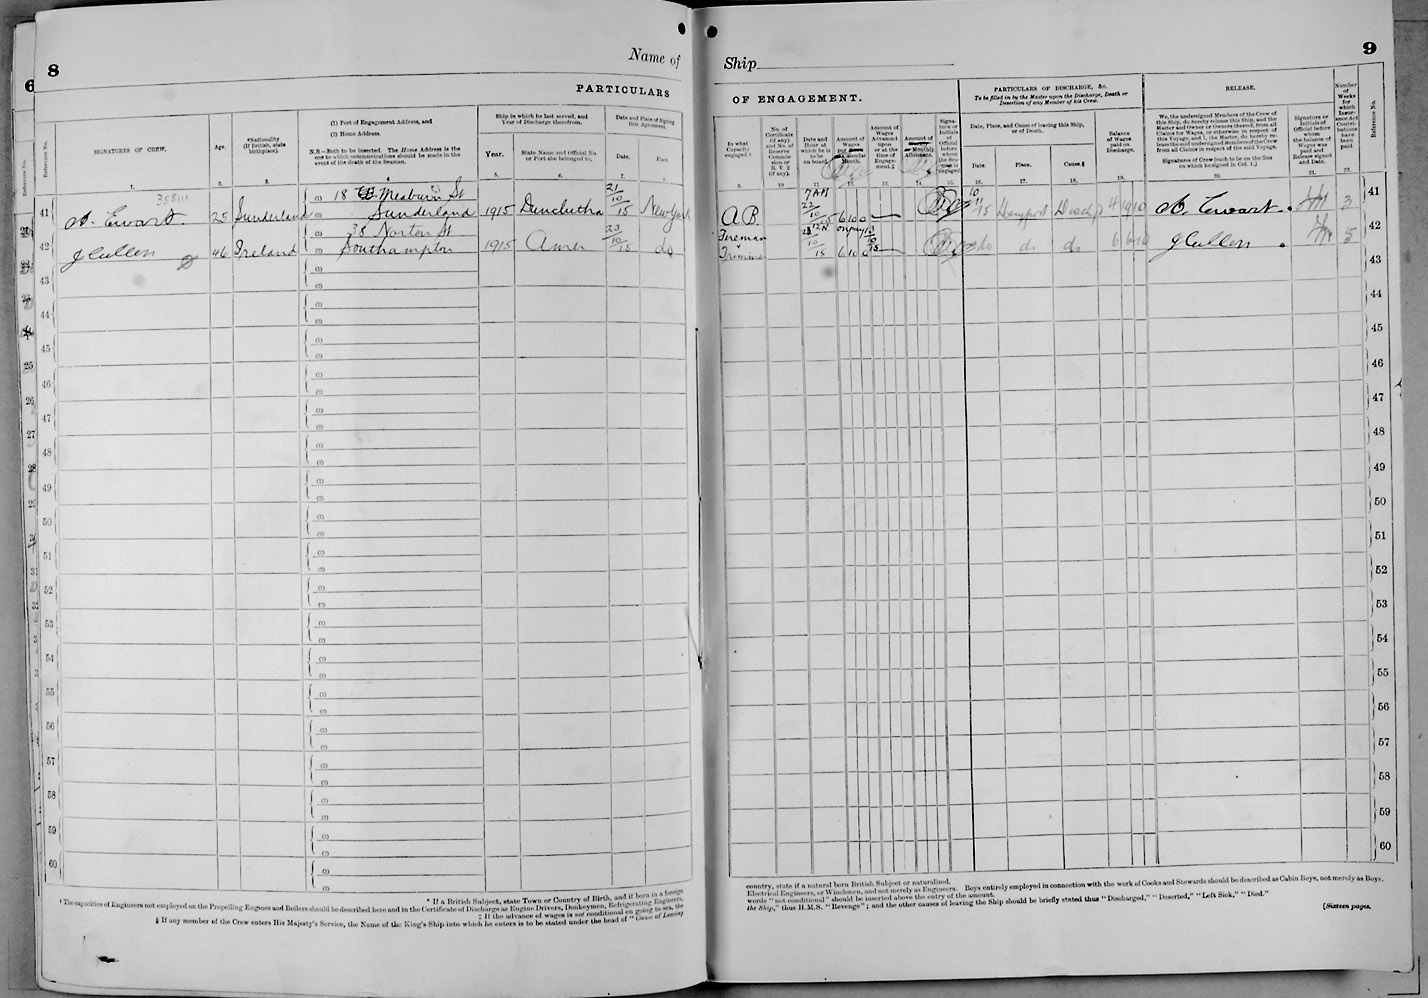 8
Name of
PARTICULARS
SIGNATURES OF CREW.
Age.
*Nationality
(If British, state
birthplace).
(1) Port of Engagement Address, and
(2) Home Address.
N.B.—Both to be inserted. The Home Address is the
one to which communications should be made in the
event of the death of the Seaman.
Ship in which he last served, and
Year of Discharge therefrom.
Year.
State Name and Official No
or Port she belonged to.
Date and Place of Signing
this Agreement.
Date.
Place.
Reference No.
1.
2.
3.
4
5.
6.
7.
41
358111
A. Ewart
25
Sunderland
18 Meaburn St
Sunderland
1915
Dunclutha
21/10/15
New York
42
J Cullen
46
Ireland
35 Norton St
Southampton
1915
23/10/15
do
43
44
45
46
47
48
49
50
51
52
53
54
55
56
57
58
59
60
* If a British Subject, state Town or Country of Birth, and if born in a foreign
† The capacities of Engineers not employed on the Propelling Engines and Boilers should be described here and in the Certificate of Discharge as Engine Drivers, Donkeymen, Refrigerating Engineers,
‡ If the advance of wages is not conditional on going to sea, the
§ If any member of the Crew enters His Majesty's Service, the Name of the King's Ship into which he enters is to be stated under the head of "Cause of Leaving
9
Ship
OF ENGAGEMENT.
PARTICULARS OF DISCHARGE, &c.
To be filled in by the Master upon the Discharge, Death or
Desertion of any Member of his Crew.
RELEASE.
Number
of
Weeks
for
which
Insur-
ance Act
Contri-
butions
have
been
paid
Reference No.
In what
Capacity
engaged.†
No. of
Certificate
(if any)
and No. of
Reserve
Commis-
sion or
R. V. 2
(if any).
Date and
Hour at
which he is
to be
on board.
Amount of
Wages
per
Calendar
Month.
Amount of
Wages
Advanced
upon
or at the
time of
Engage-
ment.‡
Amount of
Monthly
Allotment.
Signa-
ture or
Initials
of
Official
before
whom
the Sea-
man is
engaged
Date, Place, and Cause of leaving this Ship,
or of Death.
Date
Place.
Cause.§
Balance
of Wages
paid on
Discharge.
We, the undersigned Members of the Crew of
this Ship, do hereby release this Ship, and the
Master and Owner or Owners thereof, from all
Claims for Wages, or otherwise in respect of
this Voyage, and I, the Master, do hereby re-
lease the said undersigned Members of the Crew
from all Claims in respect of the said Voyage.
Signatures of Crew (each to be on the line
on which he signed in Col. 1.)
Signature or
Initials of
Official before
whom
the balance of
Wages was
paid and
Release signed
and Date.
9.
10
11
12.
13.
14
15.
16.
17.
18.
19.
20.
21.
22.
A.B.
7 AM
22/10/15
6 10 0
4 19 10
A. Ewart.
3
41
Fireman
Trimmer
6 10 0
do
do
do
J Cullen
5
42
43
44
45
46
47
48
49
50
51
52
53
54
55
56
57
58
59
60
country, state if a natural born British Subject or naturalized.
Electrical Engineers, or Winchmen, and not merely as Engineers. Boys entirely employed in connection with the work of Cooks and Stewards should be described as Cabin Boys, not merely as Boys.
words "not conditional" should be inserted above the entry of the amount.
the Ship," thus H.M.S. "Revenge"; and the other causes of leaving the Ship should be briefly stated thus "Discharged," "Deserted," "Left Sick," "Died."
[Sixteen pages.